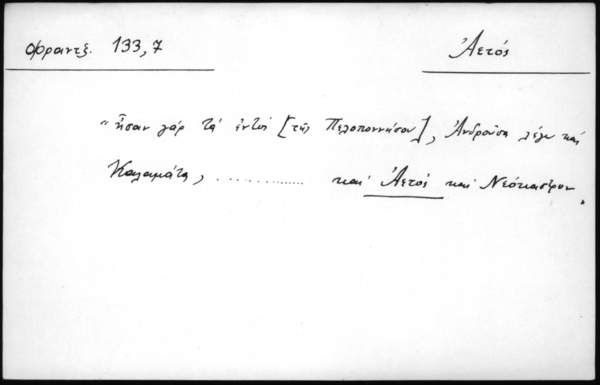 Φραντζ. 133,7
Ἀετός
"ἦσαν γάρ τά ἐντός [τῆς Πελοποννήσου], Ἀνδροῦσα λέγω καί
Καλαμάτα, ............... καί Ἀετός καί Νεόκαστρον.